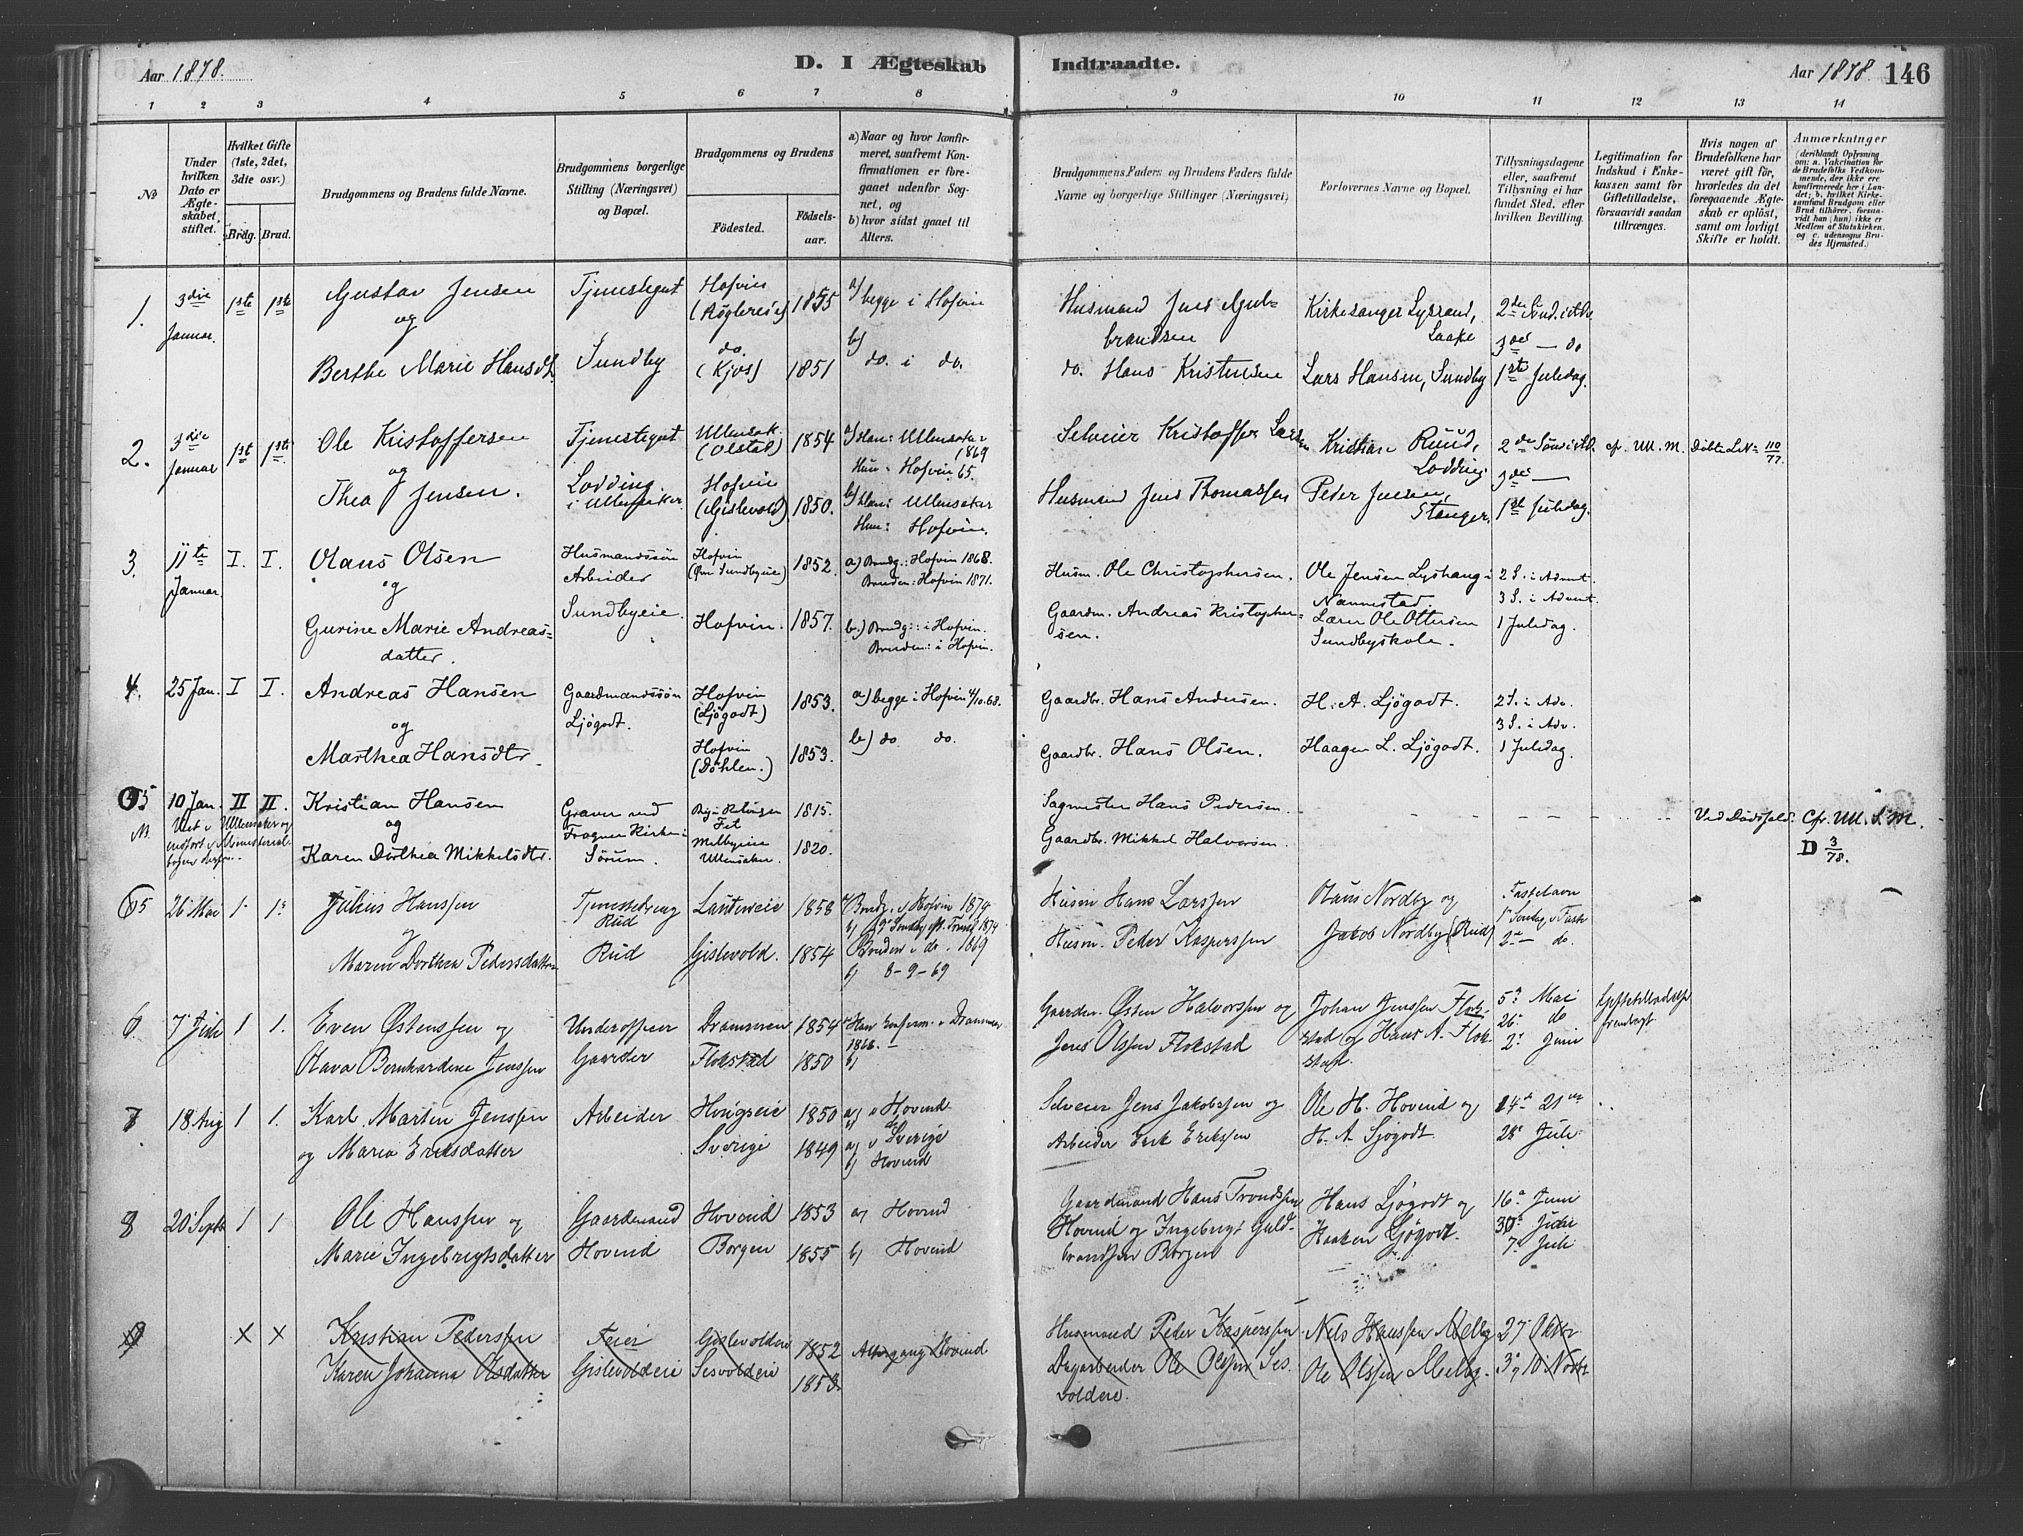 Aar 1878.
D. I Ægteskab Indtraadte.
Aar 1878. 146
1 2 3 4 5 6 7 8 9 10 11 12 13 14
№
Under hvilken Dato er Ægteskabet stiftet.
Hvilket Gifte (1ste, 2det, 3die osv.)
Brdg. Brud.
Brudgommens og Brudens fulde Navne.
Brudgommens borgerlige Stilling (Næringsvei) og Bopæl.
Brudgommens og Brudens
Fødested.
Fødselsaar.
a) Naar og hvor konfirmeret, saafremt Konfirmationen er foregaaet udenfor Sognet, og
b) hvor sidst gaaet til Alters.
Brudgommens Faders og Brudens Faders fulde Navne og borgerlige Stillinger (Næringsvei)
Forlovernes Navne og Bopæl.
Tillysningsdagene eller, saafremt Tillysning ei har fundet Sted, efter hvilken Bevilling.
Legitimation for Indskud i Enkekassen samt for Giftetilladelse, forsaavidt saadan tiltrænges.
Hvis nogen af Brudefolkene har været gift før, hvorledes da det foregaaende Ægteskab er opløst, samt om lovligt Skifte er holdt.
Anmærkninger
(deriblandt Oplysning om: a. Vakcination for de Brudefolks Vedkommende, der ikke ere konfirmerede her i Landet; b. hvilket Kirkesamfund Brudgom eller Brud tilhører, forsaavidt han (hun) ikke er Medlem af Statskirken. og c. udensogns Brudes Hjemsted.)
1. 3die Januar. 1ste 1ste Gustav Jensen Tjenestegut Hofvin 1855 a) begge i Hofvin Husmand Jens Gulbrandsen Kirkesanger Lysrand, Laake 2den Sønd. i Adv.
og 3die — do
Berthe Marie Hansdt. Sundby do. (Kjos) 1851 b) do. i do. do. Hans Kristensen Lars Hansen, Sundby 1ste Juledag.
2. 3die Januar 1ste 1ste Ole Kristoffersen Tjenestegut Ullensak. (Olstad) 1854 a) Han: Ullensaker 1869 Selveier Kristoffer Larsen Kristian Ruud, Lodding 2den Sønd. i Ad. cfr. Ull. M.
og Hun: Hofvin 65. 3die —
Thea Jensen. Lodding i Ullensaker. Hofvin (Gislevold) 1850. b) Han: Ullensaker Hun: Hofvin. Husmand Jens Thomassen Peder Jensen, Stanger. 1ste Juledag.
3. 11te Januar. I. I. Olaus Olsen Husmandssøn Arbeider Hofvin 1852. a) Brudg.: Hofvin 1868. Bruden: Hofvin 1871. Husm. Ole Christophersen. Ole Jensen Lyshaug i Nannestad 2 S. i Advent
og 3 S. i Advent.
Gurine Marie Andreasdatter. Sundbyeie. Hofvin. 1857. b.) Brudg.: i Hofvin. Bruden: i Hofvin. Gaardm. Andreas Kristophersen. Lærer Ole Ottersen Sundbyskole. 1 Juledag.
4. 25 Jan. I I. Andreas Hansen Gaardmandssøn Ljøgodt. Hofvin (Ljøgodt) 1853. a) begge i Hofvin 4/10.68. Gaardbr. Hans Andersen. H. A. Ljøgodt. 2 S. i Adv.
og 3 S. i Adv.
Marthea Hansdtr. Hofvin (Døhlen.) 1853. b) do do. Gaardbr. Hans Olsen. Haagen L. Ljøgodt. 1 Juledag
5 10 Jan. II II. Kristian Hansen Graver ved Frogner Kirke i Sørum. Fet 1815. Sagmester Hans Pedersen. Ved Dødsfald. Cfr. Ull. S. M. D 3/78.
og
Karen Dorthea Mikkelsdtr. Melbyeie Ullensaker. 1820. Gaardbr. Mikkel Halvorsen.
5 26 Mai 1. 1. Julius Hanssen Tjenestedreng Rud Lauteneie 1858 Brudg. i Hofvin 1874 Husm Hans Larssen Olaus Nordby og Fastelavn
Maren Dorthea Pedersdatter Rud Gislevold. 1854 Bruden i do. 1869 b) 8-9-69 Husm. Peder Kasperssen Jakob Nordby (Rud) 2 — do.
6. 7 Juli 1 1. Even Østenssen og Underofficer Drammen 1854 Han konfirm. i Drammen Gaardm. Østen Halvorssen og Johan Jenssen Flokstad og Hans A. Flokstad. 5 Mai Giftetilladelse fremlagt
Olava Bernhardine Jenssen Gaarder Flokstad 1850 b) Jens Olssen Flokstad 26 do 2 Juni
7 18 Aug 1 1. Karl Martin Jenssen Arbeider 1850 a) i Hovind Selveier Jens Jakobssen og Ole H. Hovind og 14 21
og Maria Eriksdatter Sverige 1849 a) i Sverige b) Hovind Arbeider Erik Erikssen H. A. Ljøgodt. 28 Juli.
8 20 Septbr 1 1 Ole Hanssen og Gaardmand Hovind 1853 a) Hovind Gaardmand Hans Trondssen Hovind og Ingebrigt Guldbrandssen Borgen Hans Ljøgodt og 16 Juni
Marie Ingebrigtsdatter Hovind Borgen 1855 b) Hovind Haaken Ljøgodt. 30 7 Juli
9 × × Kristian Pederssen Feier Gislevoldeie 1852 Altergang Hovind Husmand Peder Kasperssen Nils Hanssen Melby 27 Oktbr
Karen Johanna Olsdatter Gislevoldeie Sesvoldeie 1853. Dagarbeider Ole Olssen Sesvoldeie. Ole Olssen Melby. 3, 10 Novbr